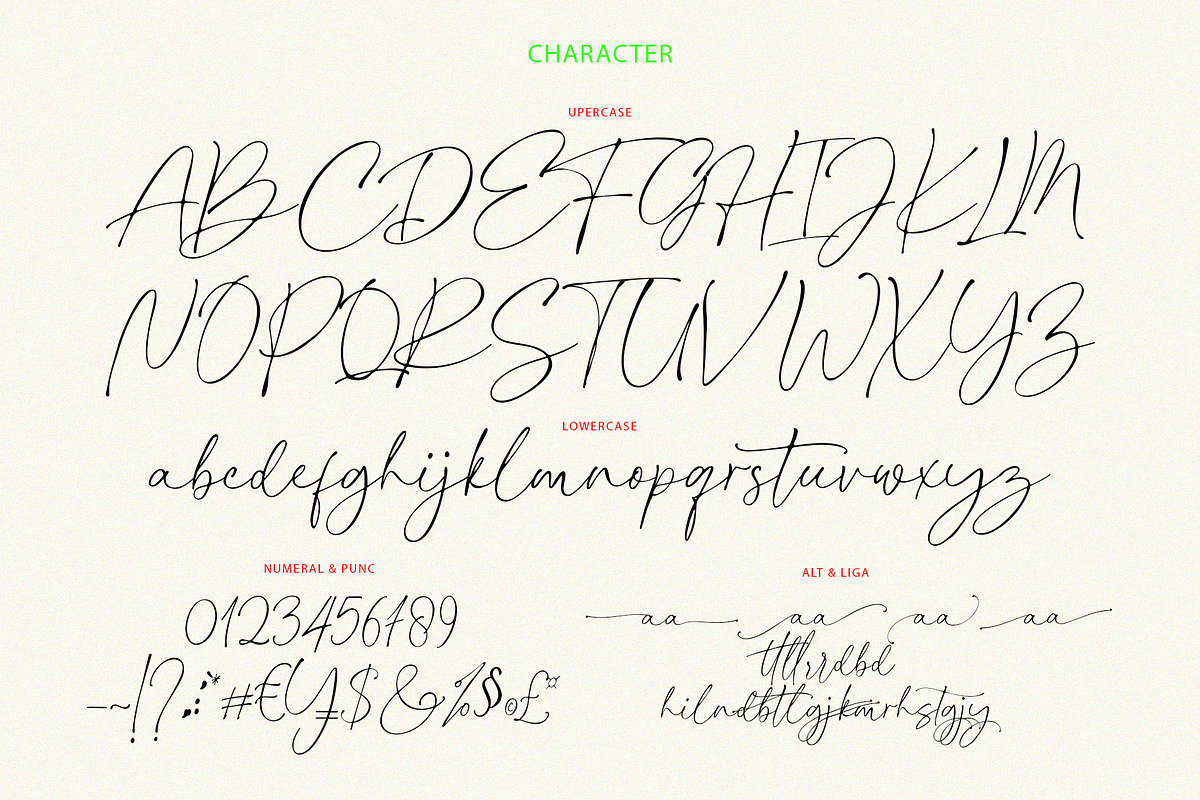 CHARACTER
UPERCASE
ABCDEFGHIJKLM
NOPQRSTUVWXYZ
LOWERCASE
abcdefghijklmnopqrstuvwxyz
NUMERAL & PUNC
0123456789
#€¥$&%§©£¤
ALT & LIGA
aa aa aa aa